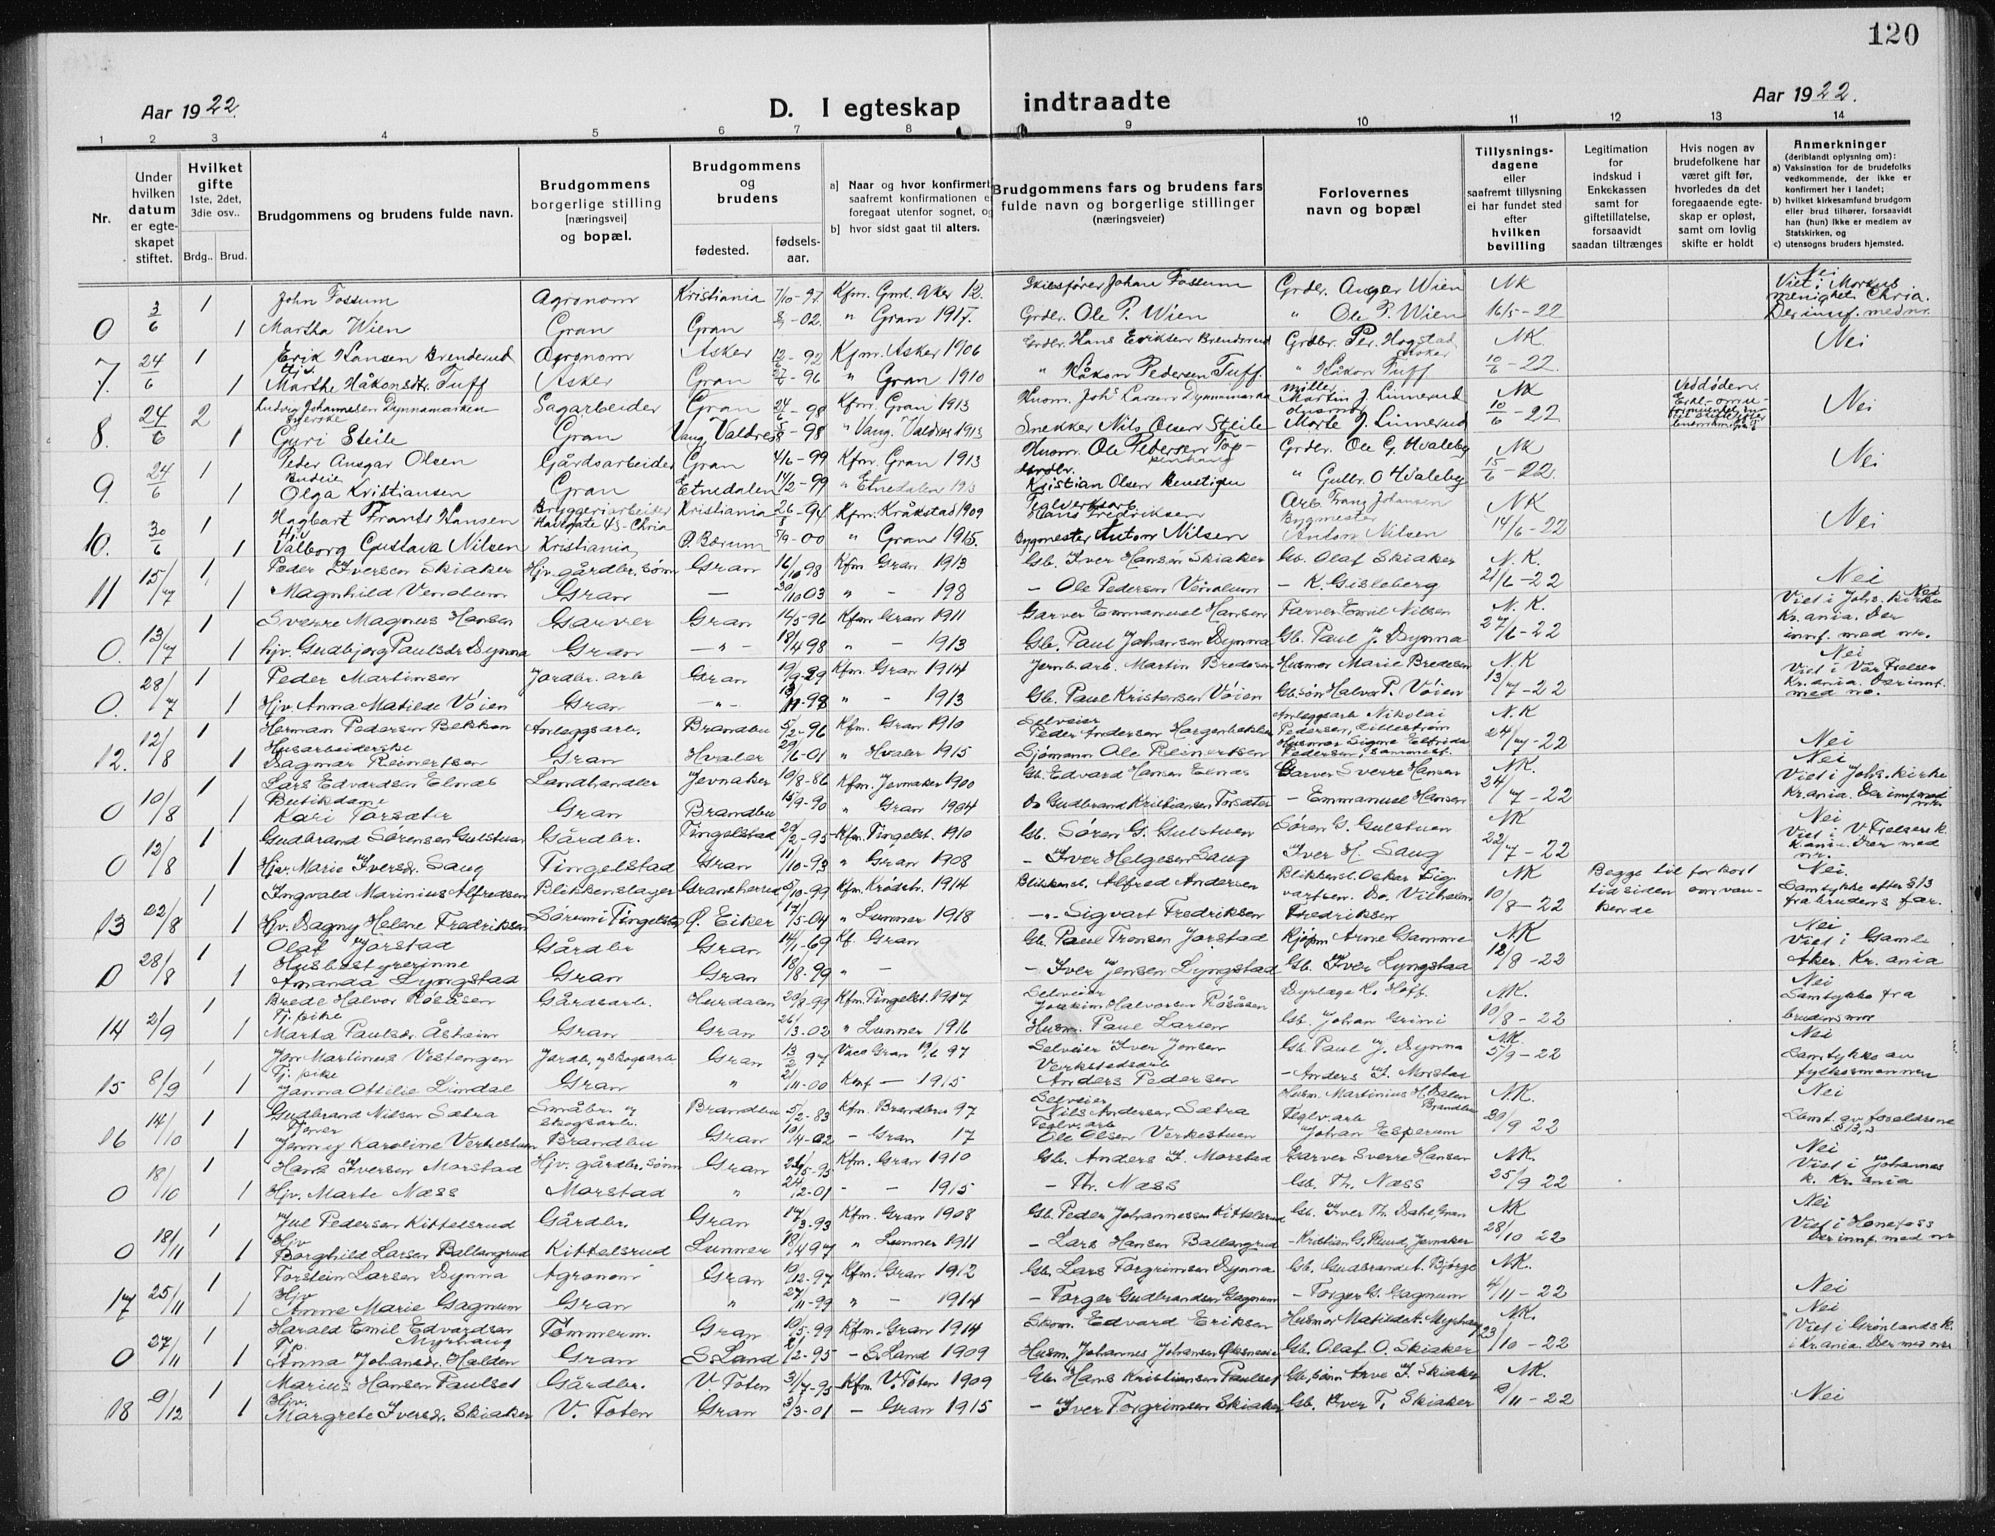 120
Aar 1922.
D. I egteskap indtraadte
Aar 1922.
1 2 3 4 5 6 7 8 9 10 11 12 13 14
Nr.
Under hvilken datum er egteskapet stiftet.
Hvilket gifte 1ste, 2det, 3die osv..
Brdg.. Brud.
Brudgommens og brudens fulde navn.
Brudgommens borgerlige stilling [næringsvei] og bopæl.
Brudgommens og brudens
fødested. fødselsaar.
a] Naar og hvor konfirmert saafremt konfirmationen er foregaat utenfor sognet, og
b] hvor sidst gaat til alters.
Brudgommens fars og brudens fars fulde navn og borgerlige stillinger (næringsveier)
Forlovernes navn og bopæl
Tillysningsdagene eller saafremt tillysning ei har fundet sted efter hvilken bevilling
Legitimation for indskud i Enkekassen samt for giftetillatelse, forsaavidt saadan tiltrænges
Hvis nogen av brudefolkene har været gift før, hvorledes da det foregaaende egteskap er opløst, samt om lovlig skifte er holdt
Anmerkninger (deriblandt oplysning om):
a) Vaksination for de brudefolks vedkommende, der ikke er konfirmert her i landet;
b) hvilket kirkesamfund brudgom eller brud tilhører, forsaavidt han (hun) ikke er medlem av Statskirken, og
c) utensogns bruders hjemsted.
3/6 1 John Fossum Agronom Kristiania 7/10-97 Kfm. Gml. Aker 12. Johan Fossum Grdbr. Ansgar Wien NK Nei Viet i Markus menighet Chria.
0 1 Martha Wien Gran Gran -02 " Gran 1917. Grdbr. Ole P. Wien " Ole P. Wien 16/5-22 Der innf. med nr.
7. 24/6 1 Erik Hansen Brenderud Agronom Asker -92 Kfm. Asker 1906 Grdbr. Hans Eriksen Brenderud Grdbr. Per. Hogstad Asker NK Nei
Hjv. 1 Marthe Håkonsdr. Tuff Asker Gran 27/6-96 " Gran 1910 " Håkon Pedersen Tuff " Håkon Tuff 10/6-22
8. 24/6 2 Ludvig Johannesen Dynnamarken Sagarbeider Gran 24/6-98 Kfm. Gran 1913 Husm. Johs Larsen Dynnamarka Møller Martin J. Linnerud NK Ved døden. Nei
1 Guri Steile Gran Vang Valdres 5/8-98 " Vang. Valdres 1913 Snekker Nils Olsen Steile Marte J. Linnerud 10/6-22
9. 24/6 1 Peder Ansgar Olsen Gårdsarbeider Gran 4/6-99 Kfm. Gran 1913 Husm. Ole Pedersen Grdbr. Ole G. Hvaleby NK Nei
Budeie 1 Olga Kristiansen Gran Etnedalen 14/2-99 " Etnedalen Kristian Olsen " Gulbr. O Hvaleby 15/6-22
10. 30/6 1 Hagbart Frants Hansen Bryggeriarbeider Kristiania 26/8-94 Kfm. Kråkstad 1909 Teglverksarb. Hans Fredriksen Arb. Franz Johansen NK Nei
Hjv 1 Valborg Gustava Nilsen Kristiania Ø. Bærum 5/9-00 " Gran 1915. Bygmester Anton Nilsen Bygmester Anton Nilsen 14/6-22
11 15/7 1 Peder Iversen Skiaker Hjv. gårdbr. sønn Gran 16/10 98 Kfm Gran 1913 Gb. Iver Hansen Skiaker Gb. Olaf Skiaker N.K. Nei
1 Magnhild Vendum Gran — 30/10 03 " - 198 - Ole Pedersen Vendum - K. Gisleberg 21/6-22
0. 13/7 1 Sverre Magnus Hansen Garver Gran 14/5-96 Kfm Gran 1911 Garver Emmanuel Hansen Farver Emil Nilsen N.K. Nei Viet i Johs. kirke Kr.ania. Der
1 Hjv. Gudbjørg Paulsdr Dynna Gran -"- 18/4 98 " - 1913 Gb. Paul Johansen Dynna Gb. Paul J. Dynna 27/6-22 innf. med nr.
0. 28/7 1 Peder Martinsen Jordbr. arb Gran 19/9-89 Kfm Gran 1914 Jernb.arb. Martin Bredesen Husmor Marie Bredesen N.K Nei Viet i Vår Frelser
1 Hjv. Anna Matilde Vøien Gran -"- -98 " - 1913 Gb. Paul Kristensen Vøien Gb. søn Halvor P. Vøien 13/7-22 Kr.ania. Der innf. med nr.
12. 12/8 1 Herman Pedersen Bekken Anleggsarb. Brandbu 5/2-96 Kfm. Gran 1910 Selveier Peder Andersen Anleggsarb Nikolai Pedersen, Lillestrøm N.K Nei
Husarbeiderske 1 Dagmar Reinertsen Gran Hvaler 29/6-01 " Hvaler 1915 Sjømann Ole Reinertsen Husmor Signe Elfrida Pedersen, sammest. 24/7-22
0 10/8 1 Lars Edvardsen Elnæs Landhandler Jevnaker 10/8-86 Kfm. Jevnaker 1900 Gb. Edvard Hansen Elnæs Garver Sverre Hansen NK. Nei Viet i Johs. kirke
Butikdame 1 Kari Torsæter Gran Brandbu 15/9-90 " Gran 1904 Do Gudbrand Kristiansen Torsæter - Emmanuel Hansen 24/7-22 Kr.ania. Der innf. med nr.
0 12/8 1 Gudbrand Sørensen Gulstuen Gårdbr. Tingelstad 20/2-95 Kfm. Tingelst. 1910 Gb. Søren G. Gulstuen Søren G. Gulstuen NK Nei Viet i V. Frelsers k.
1 Hjv. Marie Iversdr. Saug Tingelstad Gran 11/10-93 " Gran 1908 - Iver Helgesen Saug Iver H. Saug 22/7-22 Kr.ania. Der med nr.
13 22/8 1 Ingvald Marinius Alfredsen Blikkenslager Gransherred 5/10-99 Kfm. Krødsh. 1914 Blikkensl. Alfred Andersen Blikkensl. Oskar Sigvartsen. NK Begge til forkort tid siden omvankende Nei. Samtykke efter § 13
1 Hjv. Dagny Helene Fredriksen Sørum i Tingelstad Ø. Eiker 17/5-04 " Lunner 1918 -"- Sigvart Fredriksen Do. Vilhelm Fredriksen 10/8-22 fra brudens far.
0 28/8 1 Olaf Jorstad Gårdbr Gran 14/1-69 Kf. Gran Gb. Paul Tronsen Jorstad Kjøpm Arne Gamme NK Nei Viet i Gamle
Husbestyrerinne 1 Amanda Lyngstad Gran Gran 18/8-99 " - - Iver Jensen Lyngstad Gb. Iver Lyngstad 12/8-22 Aker. Kr.ania
14 2/9 1 Brede Halvor Røsåsen Gårdsarb. Hurdalen 20/8-99 Kfm Tingelst. 1917 Selveier Joakim Halvorsen Røsåsen Dyrlæge K. Hoff. NK. Nei Samtykke fra
Tj. pike 1 Marta Paulsdr. Åsheim Gran Gran 26/3-02 " Lunner 1916 Husm. Paul Larsen Gb. Johan Grini 10/8-22 brudens mor
15 8/9 1 Jon Martinus Vestengen Jordbr. og skogsarb Gran 13/2 97 Vacc Gran 19/6 97 Selveier Iver Jensen Gb. Paul J. Dynna NK. Nei Samtykke av
Tj. pike 1 Janna Otilie Lindal Gran " 21/11-00 Konf - 1915 Verkstedsarb Anders Pedersen - Anders I. Morstad 5/9-22 fylkesmannen
16 14/10 1 Gudbrand Nilsen Sætra Småbr. og skogsarb. Brandbu 5/2-83 Kfm. Brandbu 97 Selveier Nils Andersen Sætra Husm. Martinius H. Dalen Brandbu NK. Nei
1 Jenny Karoline Verkestuen Brandbu Gran 10/4-02 - Gran 17 Teglv.arb Ole Olsen Verkestuen Teglv.arb Johan Esperum 20/9 22 Samt. av foreldrene
0 18/10 1 Hans Iversen Morstad Hjv. gårdbr. sønn Gran 26/5-95 Kfm. Gran 1910 Gb. Anders I. Morstad Garver Sverre Hansen NK. Nei Viet i Johannes
1 Hjv. Marte Næss Morstad " 24/2-01 - - 1915 - Th. Næss Gb. Th. Næss 25/9 22 k. Kr.ania
0 18/11 1 Jul Pedersen Kittelsrud Gårdbr. Gran 17/3-93 Kfm. Gran 1908 Gb. Peder Johannessen Kittelsrud Gb. Iver Th. Dahl, Gran NK Nei Viet i Hønefoss
Hjv 1 Borghild Larsen Ballangrud Kittelsrud Lunner 18/4 97 " Lunner 1911 - Lars Hansen Ballangrud - Kristian G. Ruud, Jevnaker 28/10 22 Der innf. med nr
17 25/11 1 Torstein Larsen Dynna Agronom Gran 10/12-97 Kfm. Gran 1912 Gb. Lars Torgrimsen Dynna Gb. Gudbrand A. Bjørge NK. Nei
Hjv 1 Anne Marie Gagnum Gran " 27/11-99 " - 1914 - Torger Gudbrandsen Gagnum - Torger G. Gagnum 4/11-22
0 27/11 1 Harald Emil Edvardsen Myrhaug Tømmerm. Gran 10/5-99 Kfm. Gran 1914 Skom. Edvard Eriksen Husmor Matilde A. Myrhaug NK. Nei Viet i Grønlands k.
Tj. 1 Anna Johansdr. Halden Gran S. Land 2/2-95 - S. Land 1909 Husm. Johannes Johansen Gb. Olaf O. Skiaker 23/10-22 i Kr.ania. Der med nr
18 9/12 1 Marius Hansen Paulset Gårdbr. V. Toten 31/7-95 Kfm. V. Toten 1909 Gbr. Hans Kristiansen Paulset Gb. sønn Arve I. Skiaker NK. Nei
Hjv. 1 Margrete Iversdr. Skiaker V. Toten Gran 3/3-01 - Gran 1915 - Iver Torgrimsen Skiaker Gb. Iver T. Skiaker 9/11-22